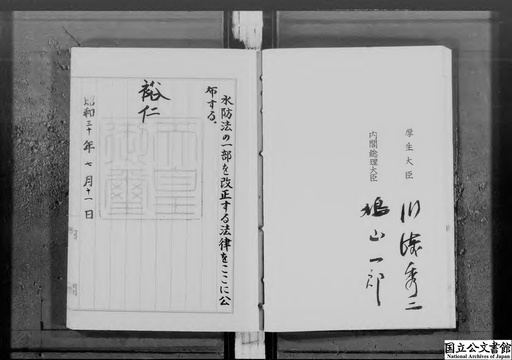 厚生大臣
川崎秀二
内閣総理大臣
鳩山一郎
水防法の一部を改正する法律をここに公
布する。
裕仁
天皇
御璽
昭和三十年七月十一日
国立公文書館
National Archives of Japan